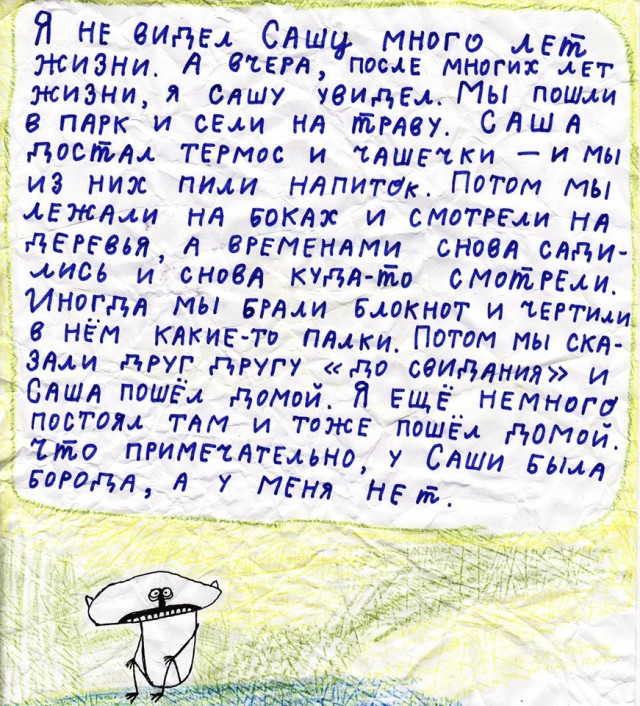 Я не видел Сашу много лет
жизни. А вчера, после многих лет
жизни, я Сашу увидел. Мы пошли
в парк и сели на траву. Саша
достал термос и чашечки – и мы
из них пили напиток. Потом мы
лежали на боках и смотрели на
деревья, а временами снова сади-
лись и снова куда-то смотрели.
Иногда мы брали блокнот и чертили
в нём какие-то палки. Потом мы ска-
зали друг другу «до свидания» и
Саша пошёл домой. Я ещё немного
постоял там и тоже пошёл домой.
Что примечательно, у Саши была
борода, а у меня нет.